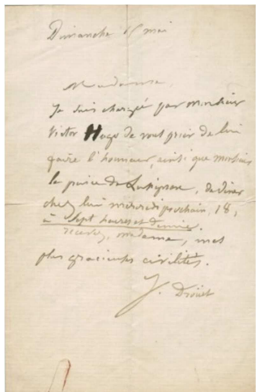 Dimanche 15 mai
Madame,
Je suis chargée par Monsieur
Victor Hugo de vous prier de lui
faire l'honneur, ainsi que Monsieur
le prince de Lusignan, de dîner
chez lui mercredi prochain, 18,
à sept heures et demie.
recevez, madame, mes
plus gracieuses civilités.
J. Drouet